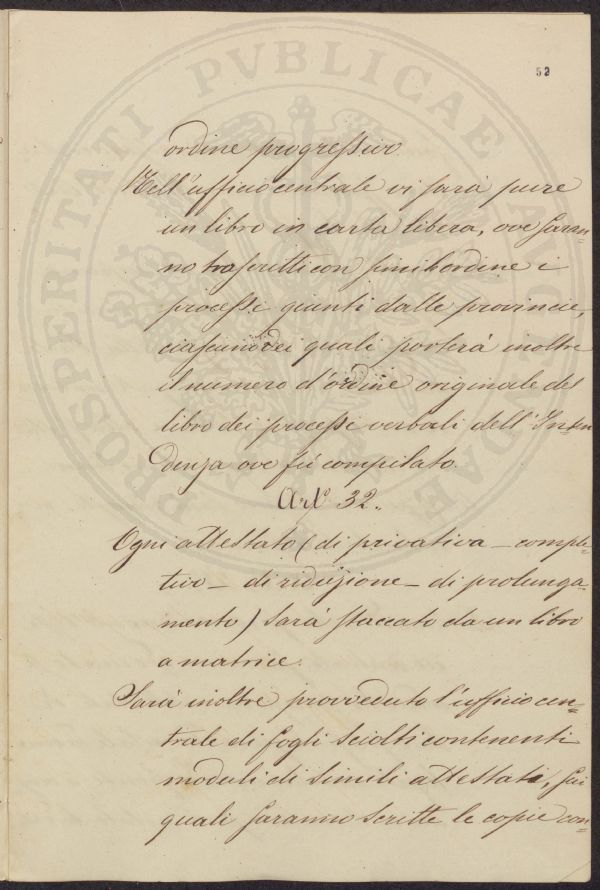 PROSPERITATI PVBLICAE AVGENDAE
52
ordine progressivo.
Nell'ufficio centrale vi sarà pure
un libro in carta libera, ove saran=
no trascritti con simil ordine i
processi giunti dalle provincie,
ciascuno dei quali porterà inoltre
il numero d'ordine originale del
libro dei processi verbali dell'Inten=
denza ove fù compilato.
Art.º 32.
Ogni attestato (di privativa _ comple=
tivo _ di riduzione _ di prolunga=
mento) sarà staccato da un libro
a matrice.
Sarà inoltre provveduto l'ufficio cen=
trale di fogli sciolti contenenti
moduli di simili attestati, sui
quali saranno scritte le copie con=